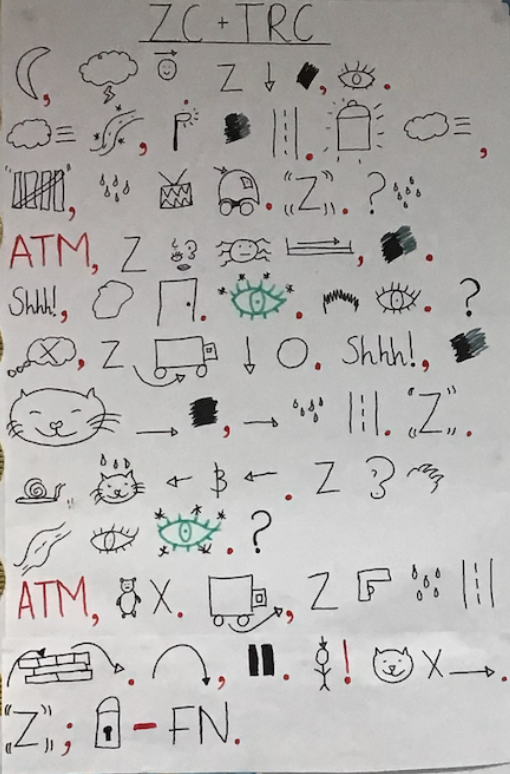 ZC + TRC
Z , .
. ,
,
, . "Z" . ?
ATM, Z , .
Shhh!, . . . ?
X , Z . Shhh!, 
, . "Z" .
. Z
. ?
ATM, X. , Z
. , . ! X .
"Z" ; - FN.